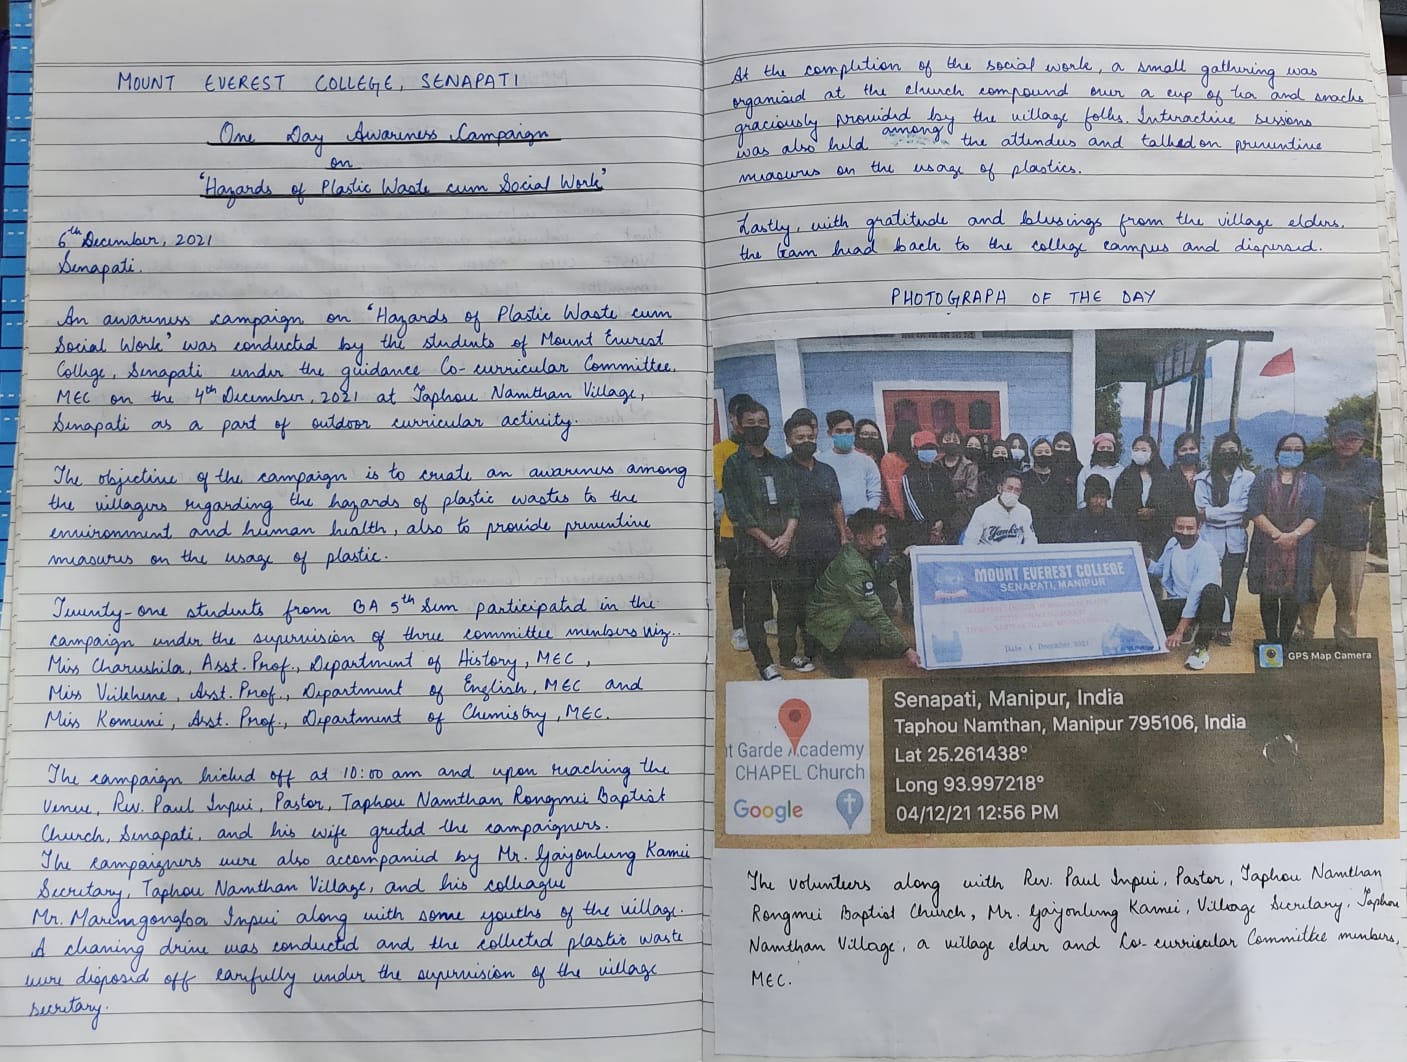 MOUNT EVEREST COLLEGE, SENAPATI
One Day Awareness Campaign
on
'Hazards of Plastic Waste cum Social Work'
6th December, 2021
Senapati.
An awareness campaign on 'Hazards of Plastic Waste cum
Social Work' was conducted by the students of Mount Everest
College, Senapati under the guidance Co-curricular Committee,
MEC on the 4th December, 2021 at Taphou Namthan Village,
Senapati as a part of outdoor curricular activity.
The objective of the campaign is to create an awareness among
the villagers regarding the hazards of plastic wastes to the
environment and human health, also to provide preventive
measures on the usage of plastic.
Twenty-one students from BA 5th Sem participated in the
campaign under the supervision of three committee members viz..
Miss Charushila, Asst. Prof., Department of History, MEC,
Miss Veikhene, Asst. Prof., Department of English, MEC and
Miss Komuni, Asst. Prof., Department of Chemistry, MEC.
The campaign kicked off at 10:00 am and upon reaching the
venue, Rev. Paul Inpui, Pastor, Taphou Namthan Rongmei Baptist
Church, Senapati, and his wife greeted the campaigners.
The campaigners were also accompanied by Mr. Gaiyonlung Kamei
Secretary, Taphou Namthan Village, and his colleague
Mr. Inpui along with some youths of the village.
A cleaning drive was conducted and the collected plastic waste
were disposed off carefully under the supervision of the village
secretary.
At the completion of the social work, a small gathering was
organised at the church compound over a cup of tea and snacks
graciously provided by the village folks. Interactive sessions
was also held among the attendees and talked on preventive
measures on the usage of plastics.
Lastly, with gratitude and blessings from the village elders,
the team head back to the college campus and dispersed.
PHOTOGRAPH OF THE DAY
Yankees
MOUNT EVEREST COLLEGE
SENAPATI, MANIPUR
Date: 4 December 2021
GPS Map Camera
t Garde Academy
CHAPEL Church
Google
Senapati, Manipur, India
Taphou Namthan, Manipur 795106, India
Lat 25.261438°
Long 93.997218°
04/12/21 12:56 PM
The volunteers along with Rev. Paul Inpui, Pastor, Taphou Namthan
Rongmei Baptist Church, Mr. Gaiyonlung Kamei, Village Secretary, Taphou
Namthan Village, a village elder and Co-curricular Committee members,
MEC.